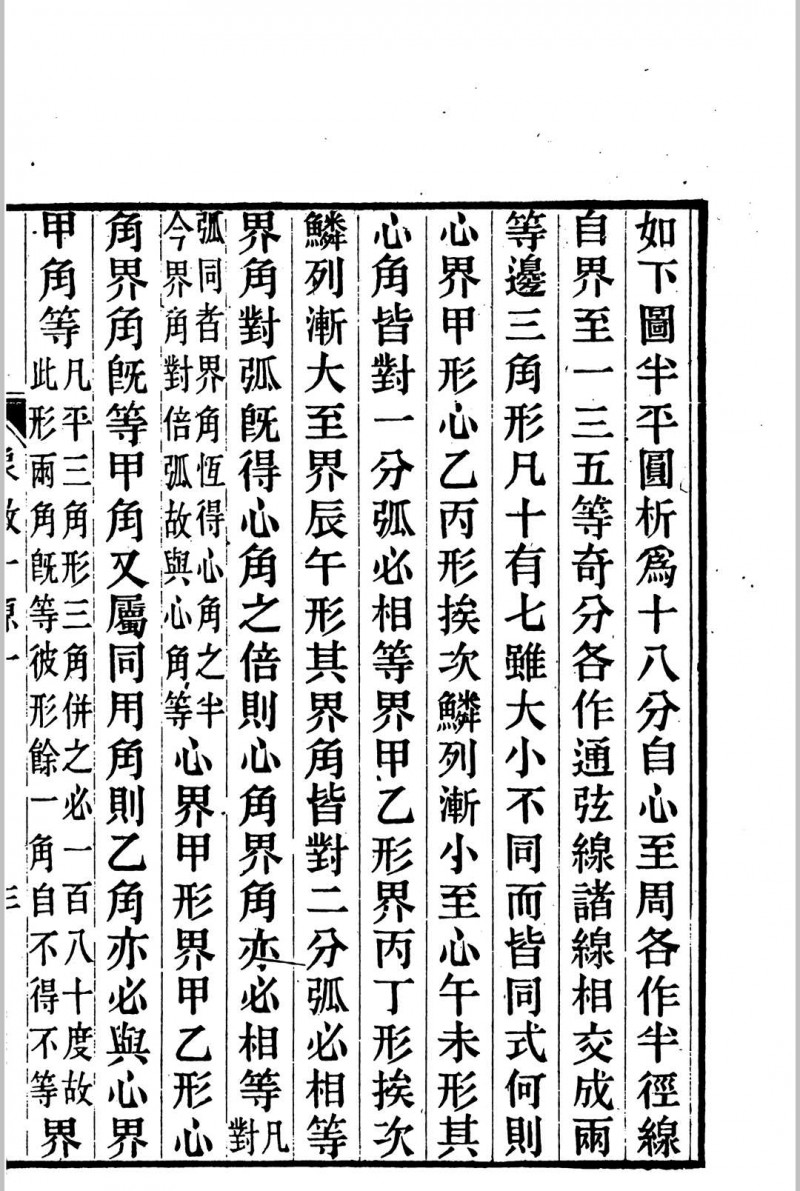 如下圖半平圓析爲十八分自心至周各作半徑線
自界至一三五等奇分各作通弦線諸線相交成兩
等邊三角形凡十有七雖大小不同而皆同式何則
心界甲形心乙丙形挨次鱗列漸小至心午未形其
心角皆對一分弧必相等界甲乙形界丙丁形挨次
鱗列漸大至界辰午形其界角皆對二分弧必相等
界角對弧旣得心角之倍則心角界角亦必相等凡對
弧同者界角恆得心角之半今界角對倍弧故與心角等心界甲形界甲乙形心
角界角旣等甲角又屬同用角則乙角亦必與心界
甲角等凡平三角形三角併之必一百八十度故此形兩角旣等彼形餘一角自不得不等界